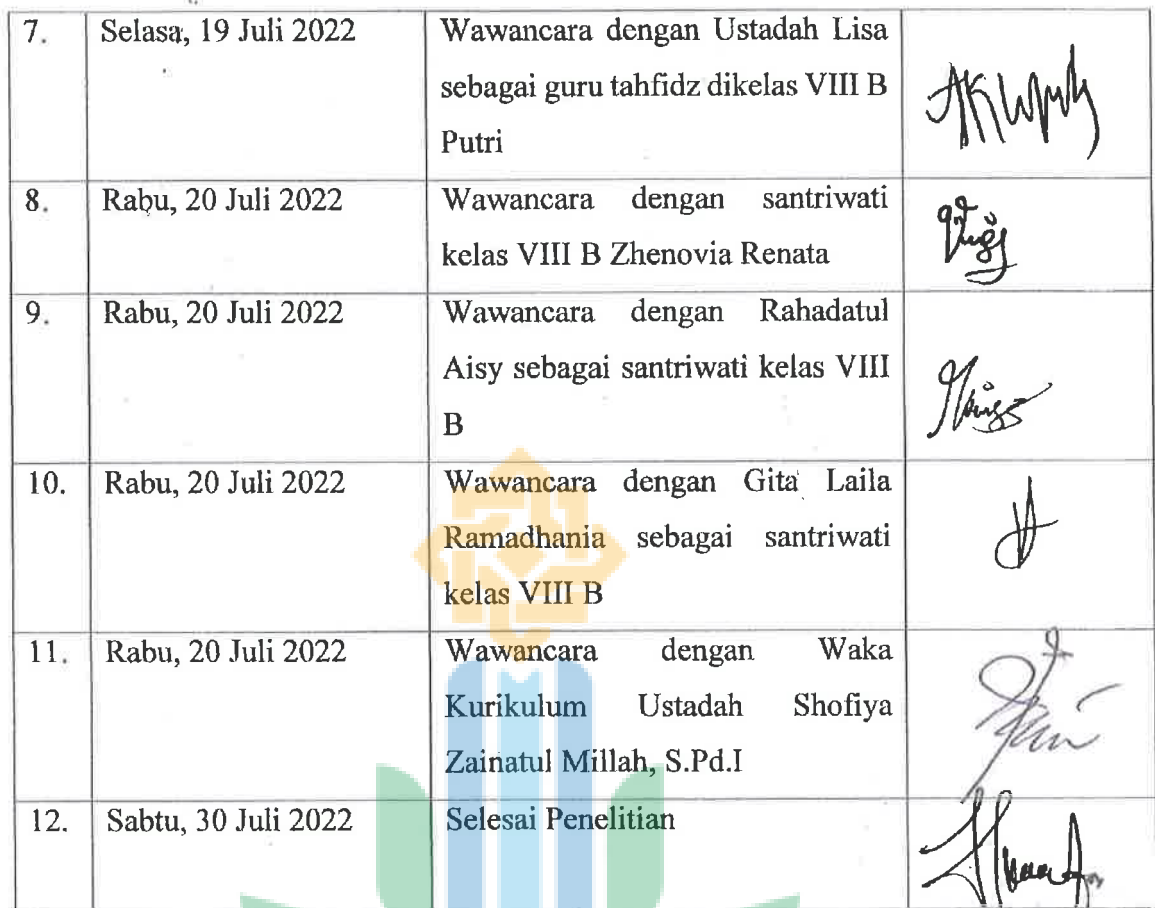 7. Selasa, 19 Juli 2022 Wawancara dengan Ustadah Lisa
sebagai guru tahfidz dikelas VIII B
Putri
8. Rabu, 20 Juli 2022 Wawancara dengan santriwati
kelas VIII B Zhenovia Renata
9. Rabu, 20 Juli 2022 Wawancara dengan Rahadatul
Aisy sebagai santriwati kelas VIII
B
10. Rabu, 20 Juli 2022 Wawancara dengan Gita Laila
Ramadhania sebagai santriwati
kelas VIII B
11. Rabu, 20 Juli 2022 Wawancara dengan Waka
Kurikulum Ustadah Shofiya
Zainatul Millah, S.Pd.I
12. Sabtu, 30 Juli 2022 Selesai Penelitian